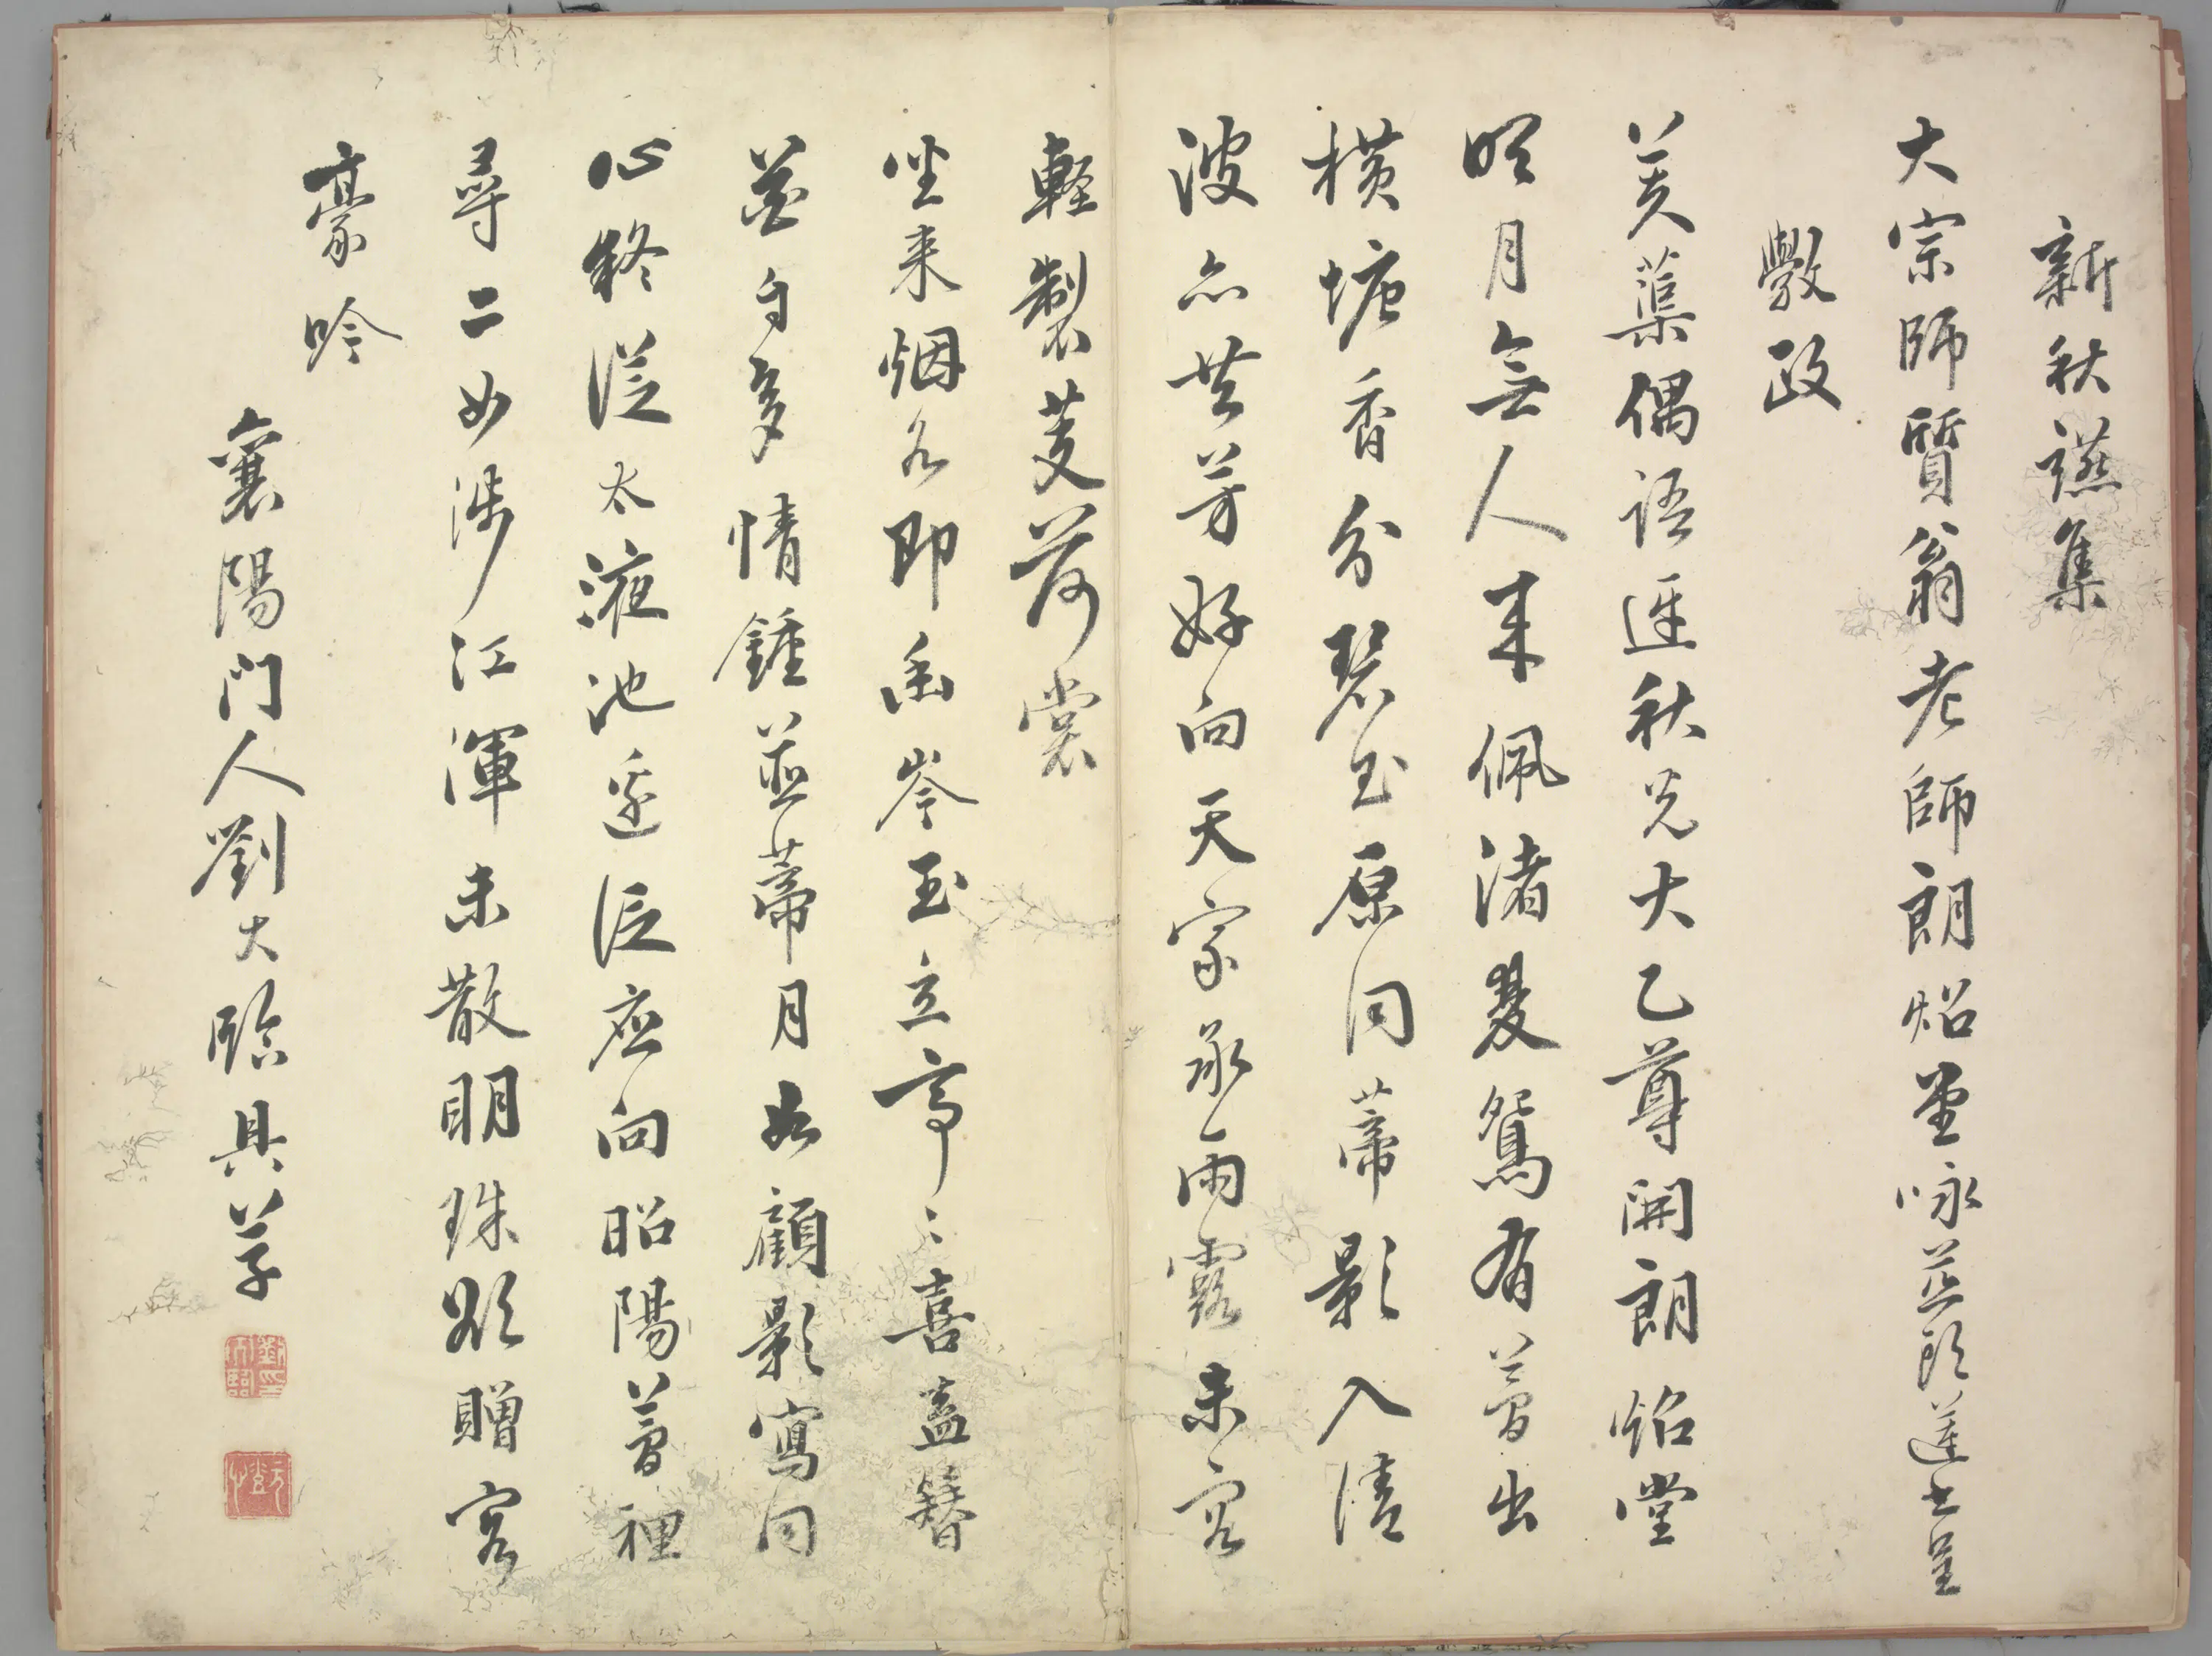 新秋讌集
大宗師質翁老師朗焰堂咏並頭蓮七呈
斆政
芙蕖偶語逗秋光太乙尊開朗焰堂
明月無人来佩渚雙鴛有夢出
横塘香分碧玉原同蒂影入清
波亦共芳好向天家承雨露未容
輕製芰荷裳
坐来烟水即函岑玉立亭〻喜盍簪
並自多情鍾並蒂月如顧影寫同
心終從太液池邊泛應向昭陽夢裡
尋二女涉江渾未散明珠欲贈客
豪吟
襄陽門人劉大臨具草